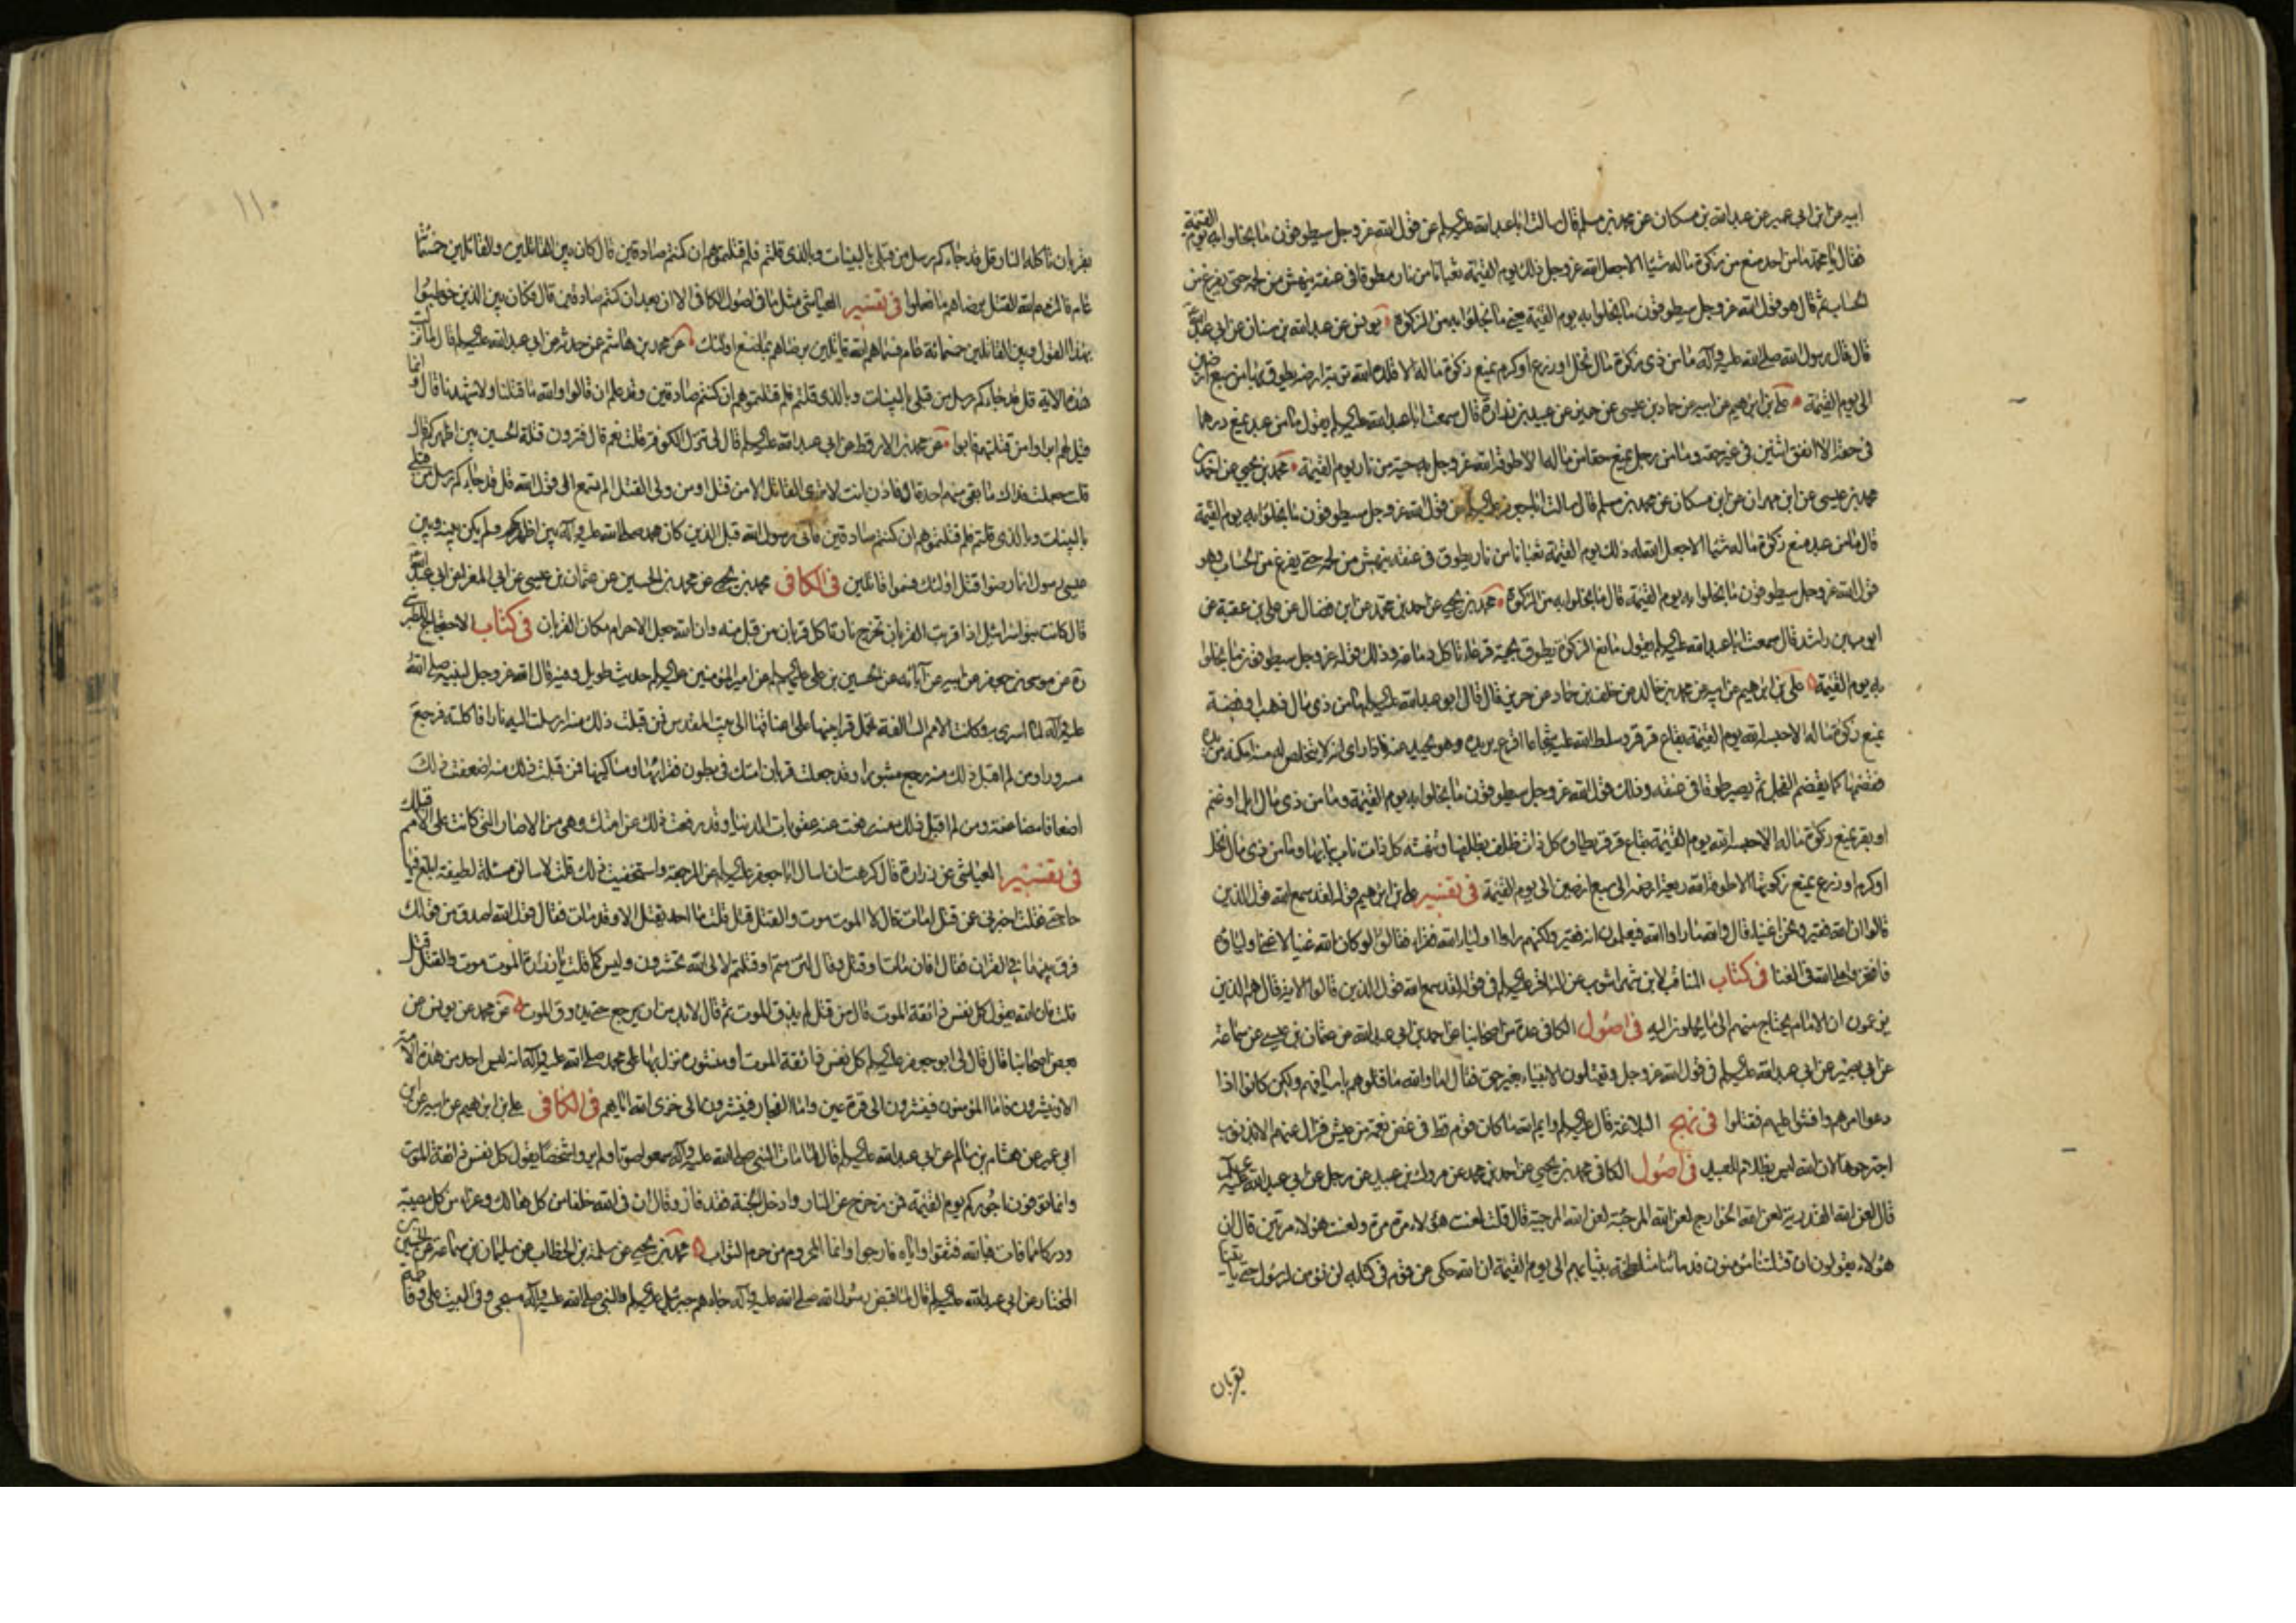 ابيه عن ابن ابي عمير عن عبد الله بن مسكان عن محمد بن مسلم قال سالت ابا عبد الله عليه السلام عن قول الله عز وجل سيطوقون ما بخلوا به يوم القيمة
فقال يا محمد ما من احد منع من زكوة ماله شيئا الا جعل الله عز وجل ذلك يوم القيمة ثعبانا من نار مطوقا في عنقه ينهش من لحمه حتى يفرغ من
الحساب ثم قال هو قول الله عز وجل سيطوقون ما بخلوا به يوم القيمة يعني ما بخلوا به من الزكوة يونس عن عبد الله بن سنان عن ابي عبد الله
قال قال رسول الله صلى الله عليه وآله ما من ذي زكوة مال نخل او زرع او كرم يمنع زكوة ماله الا قلده الله تربة ارضه يطوق بها من سبع ارضين
الى يوم القيمة علي بن ابرهيم عن ابيه عن حماد بن عيسى عن حريز عن عبيد بن زرارة قال سمعت ابا عبد الله عليه السلام يقول ما من عبد يمنع درهما
في حقه الا انفق اثنين في غير حقه وما من رجل يمنع حقا من ماله الا طوقه الله عز وجل به حية من نار يوم القيمة محمد بن يحيى عن احمد بن
محمد بن عيسى عن ابن مهران عن ابن مسكان عن محمد بن مسلم قال سالت ابا جعفر عليه السلام عن قول الله عز وجل سيطوقون ما بخلوا به يوم القيمة
قال ما من عبد منع زكوة ماله شيئا الا جعل الله له ذلك يوم القيمة ثعبانا من نار يطوق في عنقه ينهش من لحمه حتى يفرغ من الحساب وهو
قول الله عز وجل سيطوقون ما بخلوا به يوم القيمة قال ما بخلوا به من الزكوة محمد بن يحيى عن احمد بن محمد عن ابن فضال عن علي بن عقبة عن
ايوب بن راشد قال سمعت ابا عبد الله عليه السلام يقول مانع الزكوة يطوق بحية قرعاء تاكل دماغه وذلك قوله عز وجل سيطوقون ما بخلوا
به يوم القيمة علي بن ابرهيم عن ابيه عن محمد بن خالد عن خلف بن حماد عن حريز قال قال ابو عبد الله عليه السلام ما من ذي مال ذهب او فضة
يمنع زكوة ماله الا حبسه الله يوم القيمة بقاع قرقر وسلط الله عليه شجاعا اقرع يريده وهو يحيد عنه فاذا راى انه لا يتخلص له منه امكنه من يده
فقضمها كما يقضم الفجل ثم يصير طوقا في عنقه وذلك قول الله عز وجل سيطوقون ما بخلوا به يوم القيمة وما من ذي مال ابل او غنم
او بقر يمنع زكوة ماله الا حبسه الله يوم القيمة بقاع قرقر يطاه كل ذات ظلف بظلفها وينهشه كل ذات ناب بنابها وما من ذي مال نخل
او كرم او زرع يمنع زكوتها الا طوقه الله ريعة ارضه الى سبع ارضين الى يوم القيمة في تفسير علي بن ابرهيم قوله لقد سمع الله قول الذين
قالوا ان الله فقير ونحن اغنياء قال والله ما راوا الله فيعلمون انه فقير ولكنهم راوا اولياء الله فقراء فقالوا لو كان الله غنيا لاغنى اولياءه
في الغنا في كتاب المناقب لابن شهراشوب عن الباقر عليه السلام في قوله لقد سمع الله قول الذين قالوا الاية قال هم الذين
يزعمون ان الامام يحتاج منهم الى ما يحملونه اليه في اصول الكافي عدة من اصحابنا عن احمد بن ابي عبد الله عن عثمان بن عيسى عن سماعة
عن ابي بصير عن ابي عبد الله عليه السلام في قول الله عز وجل وتقتلون الانبياء بغير حق فقال اما والله ما قتلوهم باسيافهم ولكن كانوا اذا
دعوا امرهم وافشوا عليهم فقتلوا في نهج البلاغة قال عليه السلام وايم الله ما كان قوم قط في غض نعمة من عيش فزال عنهم الا بذنوب
اجترحوها لان الله ليس بظلام للعبيد في اصول الكافي محمد بن يحيى عن احمد بن محمد عن مروك بن عبيد عن رجل عن ابي عبد الله عليه السلام
قال لعن الله القدرية لعن الله الخوارج لعن الله المرجئة لعن الله المرجية قال قلت لعنت هؤلاء مرة مرة ولعنت هؤلاء مرتين قال ان
هؤلاء يقولون ان قتلتنا مؤمنون فدمائنا متلطخة بثيابهم الى يوم القيمة ان الله حكى عن قوم في كتابه لن نؤمن لرسول حتى ياتينا
بقربان
١١٠
بقربان تاكله النار قل قد جاءكم رسل من قبلي بالبينات وبالذي قلتم فلم قتلتموهم ان كنتم صادقين قال كان بين القاتلين والقائلين خمسمائة
عام فالزمهم الله القتل برضاهم ما فعلوا في تفسير العياشي مثل ما في اصول الكافي الا ان بعد ان كنتم صادقين قال فكان بين الذين خوطبوا
بهذا القول وبين القاتلين خمسمائة عام فسماهم الله قاتلين برضاهم بما صنع اولئك عن محمد بن هاشم عمن حدثه عن ابي عبد الله عليه السلام قال لما نزلت
هذه الاية قل قد جاءكم رسل من قبلي بالبينات وبالذي قلتم فلم قتلتموهم ان كنتم صادقين وقد علم ان قالوا والله ما قتلنا ولا شهدنا قال وانما
قيل لهم ابراوا من قتلتهم فابوا عن محمد بن الارقط عن ابي عبد الله عليه السلام قال لي تنزل الكوفة قلت نعم قال فترون قتلة الحسين بين اظهركم قال
قلت جعلت فداك ما بقي منهم احد قال فاذن انت لا ترى القاتل الا من قتل او من ولي القتل الم تسمع الى قول الله قل قد جاءكم رسل من قبلي
بالبينات وبالذي قلتم فلم قتلتموهم ان كنتم صادقين فاى رسول الله قبل الذين كان محمد صلى الله عليه وآله بين اظهرهم ولم يكن بينه وبين
عيسى رسول انما رضوا قتل اولئك فسموا قاتلين في الكافي محمد بن يحيى عن محمد بن الحسين عن عثمان بن عيسى عن ابي المغرا عن ابي عبد الله
قال كانت بنو اسرائيل اذا قربت القربان تخرج نار تاكل قربان من قبل منه وان الله جعل الاحرام مكان القربان في كتاب الاحتجاج للطبرسي
ره عن موسى بن جعفر عن ابيه عن آبائه عن الحسين بن علي عليه السلام عن امير المؤمنين عليه السلام حديث طويل وفيه قال الله عز وجل لنبيه صلى الله
عليه وآله لما اسرى به وكانت الامم السالفة تحمل قرابينها على اعناقها الى بيت المقدس فمن قبلت ذلك منه ارسلت اليه نارا فاكلته فرجع
مسرورا ومن لم اقبل ذلك منه رجع مثبورا وقد جعلت قربان امتك في بطون فقرائها ومساكينها فمن قبلت ذلك منه اضعفت ذلك
اضعافا مضاعفة ومن لم اقبل ذلك منه رفعت عنه عقوبات الدنيا وقد رفعت ذلك عن امتك وهي من الاصار التي كانت على الامم قبلك
في تفسير العياشي عن زرارة قال كرهت ان اسال ابا جعفر عليه السلام عن الرجعة واستخفيت ذلك قلت لاسالن مسئلة لطيفة ابلغ فيها
حاجتي فقلت اخبرني عمن قتل امات قال لا الموت موت والقتل قتل قلت ما احد يقتل الا وقد مات فقال قول الله اصدق من قولك
فرق بينهما في القران فقال افان مات او قتل وقال لئن متم او قتلتم لالى الله تحشرون وليس كما قلت يا زرارة الموت موت والقتل قتل
قلت فان الله يقول كل نفس ذائقة الموت قال من قتل لم يذق الموت ثم قال لا بد من ان يرجع حتى يذوق الموت عن محمد عن يونس عن
بعض اصحابنا قال قال لي ابو جعفر عليه السلام كل نفس ذائقة الموت او منشورة نزل بها على محمد صلى الله عليه وآله انه ليس احد من هذه الامة
الا وينشرون فاما المؤمنون فينشرون الى قرة عين واما الفجار فينشرون الى خزى الله اياهم في الكافي علي بن ابرهيم عن ابيه عن ابن
ابي عمير عن هشام بن سالم عن ابي عبد الله عليه السلام قال لما مات النبي صلى الله عليه وآله سمعوا صوتا ولم يروا شخصا يقول كل نفس ذائقة الموت
وانما توفون اجوركم يوم القيمة فمن زحزح عن النار وادخل الجنة فقد فاز وقال ان في الله خلفا من كل هالك وعزاء من كل مصيبة
ودركا مما فات فبالله فثقوا واياه فارجوا وانما المحروم من حرم الثواب محمد بن يحيى عن سلمة بن الخطاب عن سليمان بن سماعة عن الحسين بن
المختار عن ابي عبد الله عليه السلام قال لما قبض رسول الله صلى الله عليه وآله جاءهم جبرئيل عليه السلام والنبي صلى الله عليه وآله مسجى وفي البيت علي وفاطمة